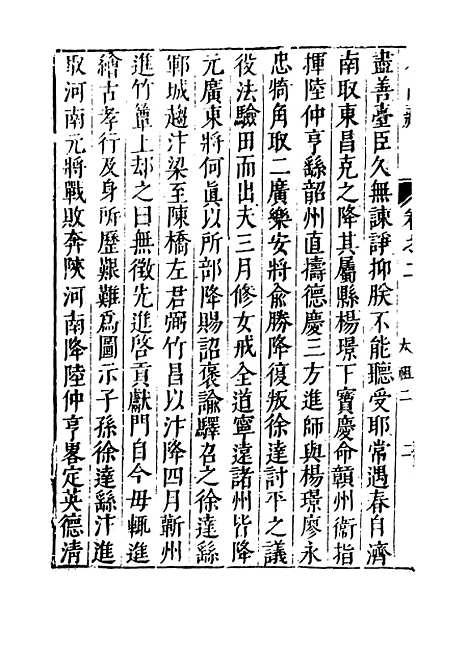 盡善臺臣久無諫諍抑朕不能聽受耶常遇春自濟
南取東昌克之降其屬縣楊璟下寶慶命贑州衞指
揮陸仲亨繇韶州直擣德慶三方進師與楊璟廖永
忠犄角取二廣樂安將俞勝降復叛徐達討平之議
役法驗田而出夫三月修女戒全道寧遠諸州皆降
元廣東將何眞以所部降賜詔褒諭驛召之徐達繇
鄆城趨汴梁至陳橋左君弼竹昌以汴降四月蘄州
進竹簟上却之曰無徵先進啓貢獻門自今毋輒進
繪古孝行及身所歷艱難爲圖示子孫徐達繇汴進
取河南元將戰敗奔陝河南降陸仲亨畧定英德清
卷之二
太祖二
二